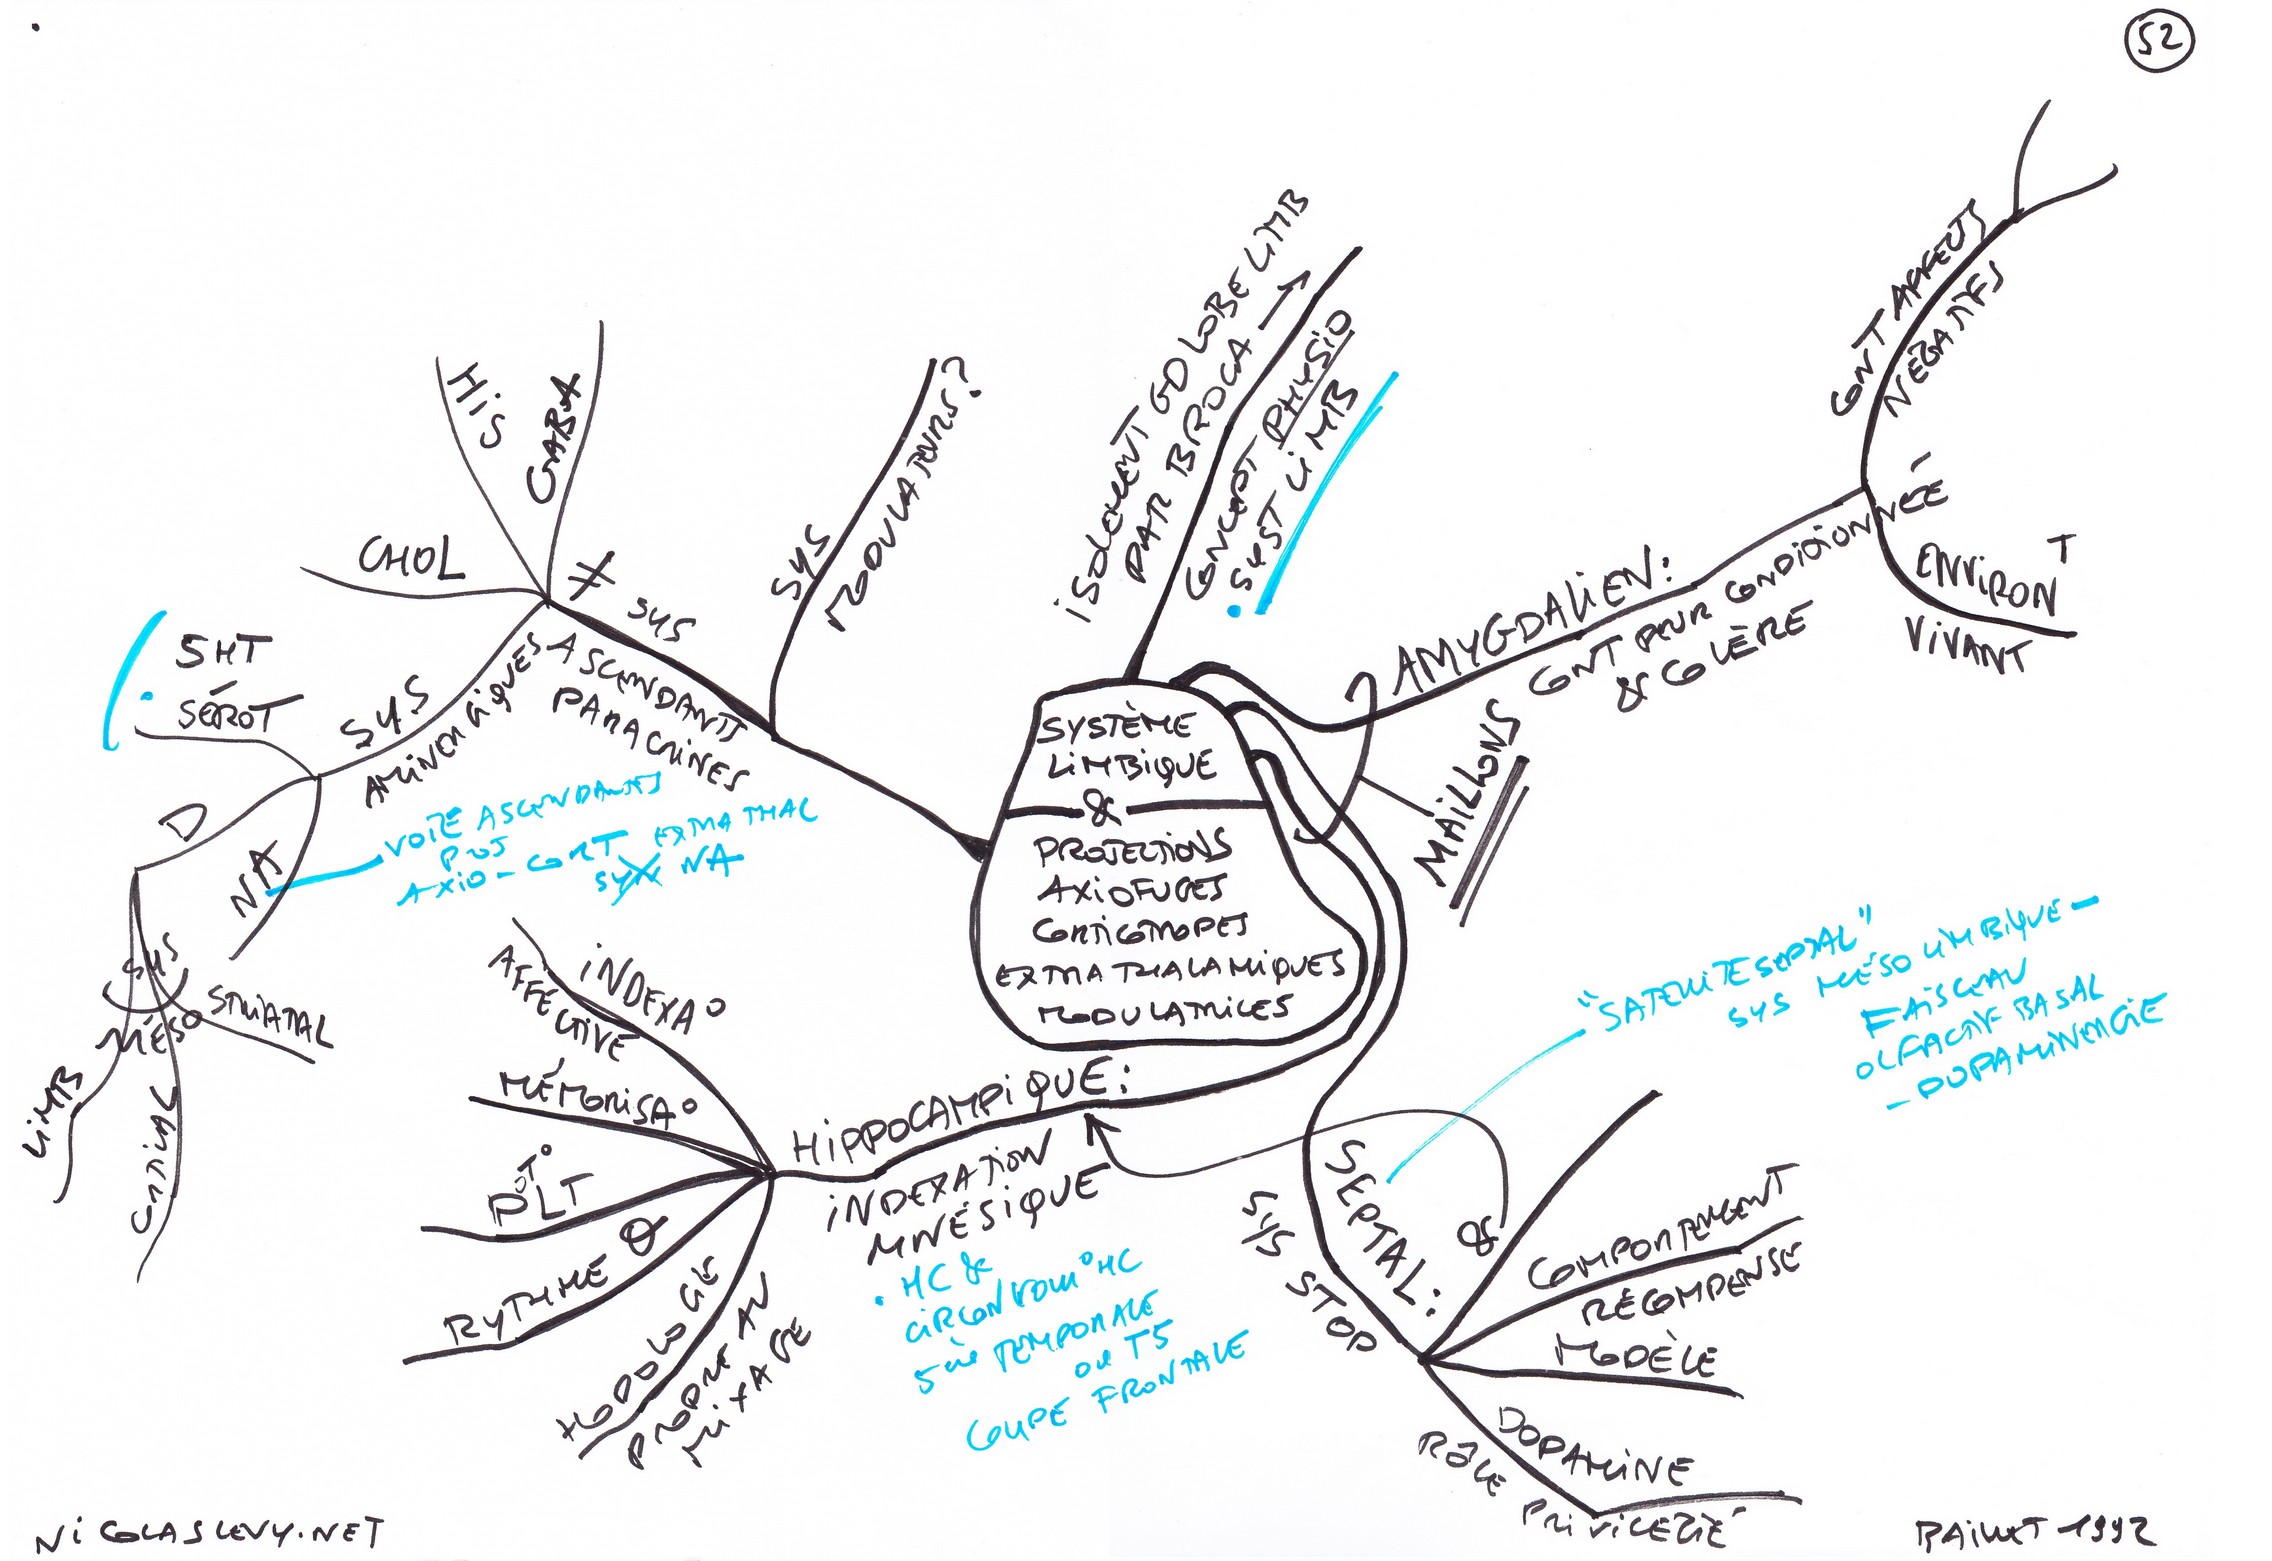 52
ISOLEMENT GD LOBE LIMB
PAR BROCA →
CONCEPT PHYSIO
SYST LIMB
SYSTÈME
LIMBIQUE
&
PROJECTIONS
AXIOFUGES
CORTICOTROPES
EXTRATHALAMIQUES
MODULATRICES
AMYGDALIEN:
CONT PEUR CONDITIONNÉE
& COLÈRE
CONT AFFECTS
NÉGATIFS
ENVIRONT
VIVANT
MAILLONS
SEPTAL:
SYS STOP
&
COMPORTEMENT
RÉCOMPENSE
MODÈLE
DOPAMINE
RÔLE PRIVILÉGIÉ
"SATELLITE SEPTAL"
SYS MÉSOLIMBIQUE -
FAISCEAU
OLFACTIF BASAL
- DOPAMINERGIE
HIPPOCAMPIQUE:
INDEXATION
MNÉSIQUE
. HC &
CIRCONVOLU° HC
5ème TEMPORALE
ou T5
COUPE FRONTALE
INDEXA°
AFFECTIVE
MÉMORISA°
POT°
LT
RYTHME Θ
HODOLOGIE
PROPRE AU
MIXAGE
SYS
MODULATEURS?
≠ SYS
ASCENDANTS
PARACRINES
GABA
HIS
CHOL
SYS
AMINERGIQUES
5HT
SÉROT
D
NA
VOIE ASCENDANTES
AXIO-CORT EXTRATHAL
SYX NA
SYS
MÉSO
STRIATAL
LIMB
CORTICAL
NICOLASLEVY.NET
BAILLET 1992